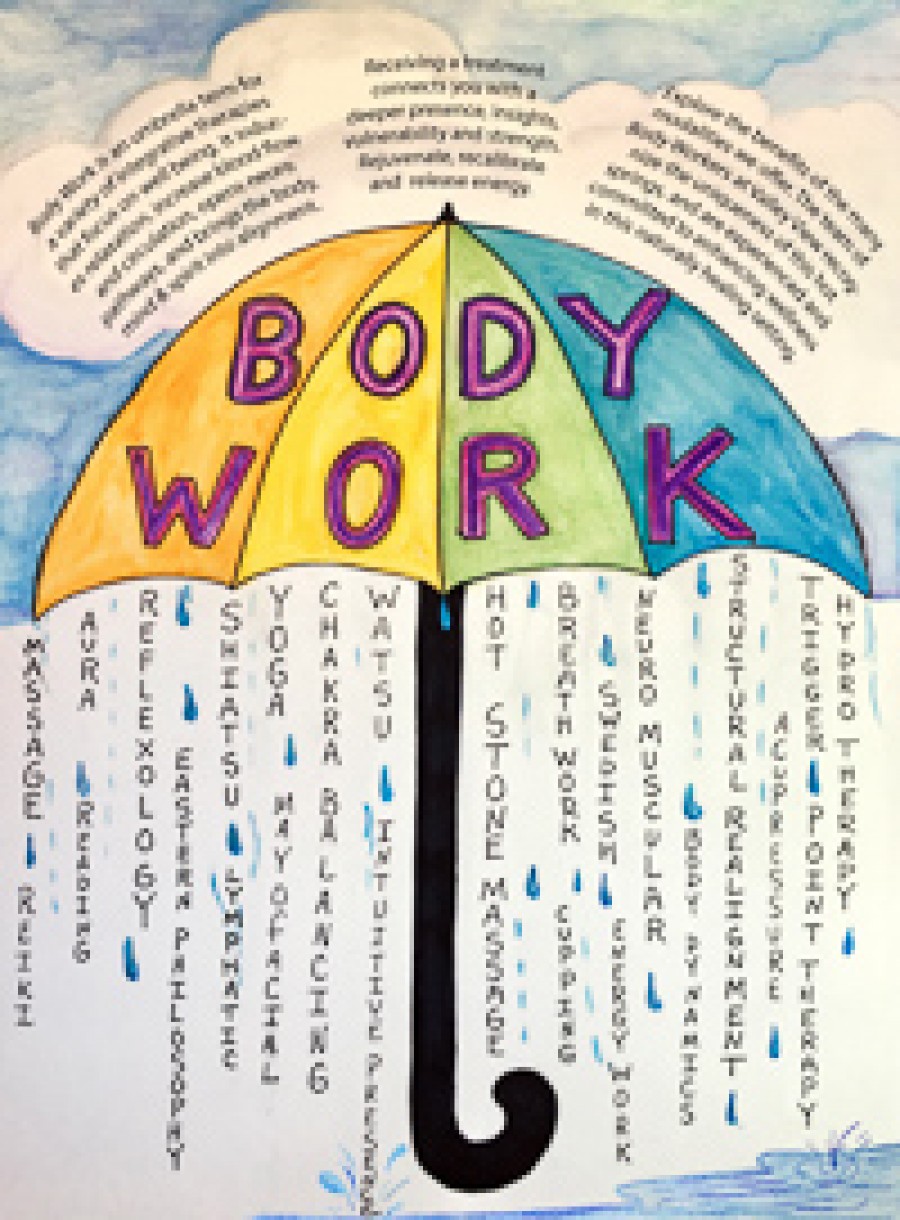 Body Work is an umbrella term for
a variety of integrative therapies
that focus on well being. It
relaxation, increase blood flow
and circulation, opens neural
pathways, and brings the body,
mind & spirit into alignment.
Receiving a treatment
connects you with a
deeper presence, insights,
vulnerability and strength.
Rejuvenate, recalibrate
and release energy
Explore the benefits of the many
modalities we offer. The team of
Body Workers at Valley View
the uniqueness of this hot
springs, and are experienced and
committed to enhancing wellness
in this naturally healing setting.
BODY
WORK
MASSAGE REIKI
AURA READING
REFLEXOLOGY
EASTERN PHILOSOPHY
SHIATSU LYMPHATIC
YOGA MAYOFACIAL
CHAKRA BALANCING
WATSU INTUITIVE
HOT STONE MASSAGE
BREATH WORK CUPPING
SWEDISH ENERGY WORK
NEURO MUSCULAR
BODY DYNAMICS
STRUCTURAL REALIGNMENT
ACUPRESSURE
TRIGGER POINT THERAPY
HYDRO THERAPY